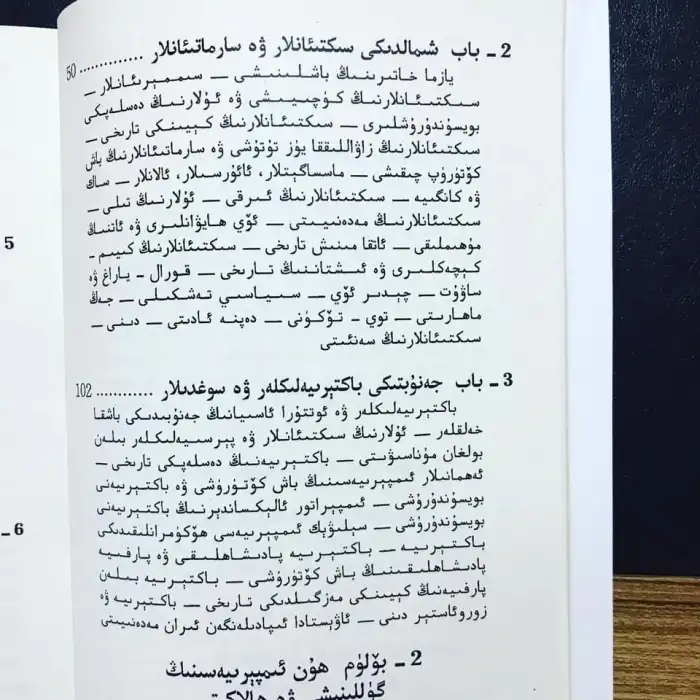 2 - باب شىمالدىكى سىكتىئانلار ۋە سارماتىئانلار .............. 50
يازما خاتىرىنىڭ باشلىنىشى — سىممىرىئانلار —
سىكتىئانلارنىڭ كۆچىيىشى ۋە ئۇلارنىڭ دەسلەپكى
بويسۇندۇرۇشلىرى — سىكتىئانلارنىڭ كېيىنكى تارىخى —
سىكتىئانلارنىڭ زاۋاللىققا يۈز تۇتۇشى ۋە سارماتىئانلارنىڭ باش
كۆتۈرۈپ چىقىشى — ماسساگېتلار، ئائۇرسىلار، ئالانلار — ساك
ۋە كانگىيە — سىكتىئانلارنىڭ ئىرقى — ئۇلارنىڭ تىلى —
سىكتىئانلارنىڭ مەدەنىيىتى — ئۆي ھايۋانلىرى ۋە ئاتنىڭ
مۇھىملىقى — ئاتقا مىنىش تارىخى — سىكتىئانلارنىڭ كىيىم -
كېچەكلىرى ۋە ئىشتاننىڭ تارىخى — قورال - ياراغ ۋە
ساۋۇت — چېدىر ئۆي — سىياسىي تەشكىلى — جەڭ
ماھارىتى — توي - تۆكۈنى — دەپنە ئادىتى — دىنى —
سىكتىئانلارنىڭ سەنئىتى
3 - باب جەنۇبتىكى باكتېرىيەلىكلەر ۋە سوغدىلار ............ 102
باكتېرىيەلىكلەر ۋە ئوتتۇرا ئاسىيانىڭ جەنۇبىدىكى باشقا
خەلقلەر — ئۇلارنىڭ سىكتىئانلار ۋە پېرسىيەلىكلەر بىلەن
بولغان مۇناسىۋىتى — باكتېرىيەنىڭ دەسلەپكى تارىخى —
ئەھمانىلار ئىمپېرىيەسىنىڭ باش كۆتۈرۈشى ۋە باكتېرىيەنى
بويسۇندۇرۇشى — ئىمپېراتور ئالېكساندېرنىڭ باكتېرىيەنى
بويسۇندۇرۇشى — سېلىۋېك ئىمپېرىيەسى ھۆكۈمرانلىقىدىكى
باكتېرىيە — باكتېرىيە پادىشاھلىقى ۋە پارفىيە
پادىشاھلىقىنىڭ باش كۆتۈرۈشى — باكتېرىيە بىلەن
پارفىيەنىڭ كېيىنكى مەزگىلدىكى تارىخى — باكتېرىيە ۋە
زوروئاستېر دىنى — ئاۋېستادا ئىپادىلەنگەن ئىران مەدەنىيىتى
2 - بۆلۈم ھۇن ئىمپېرىيەسىنىڭ
گۈللىنىشى ۋە ھالاكىتى
5
6 -